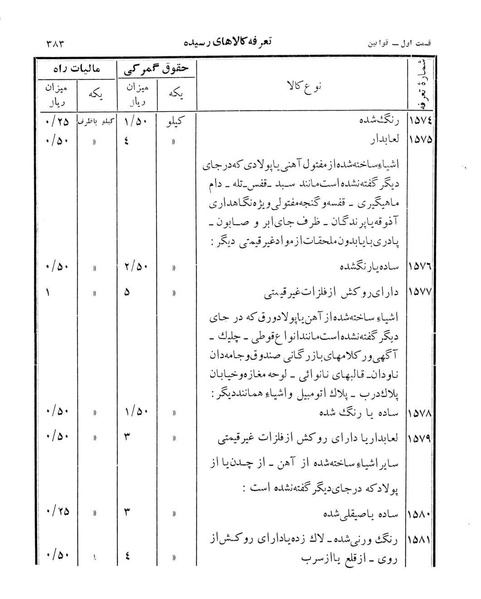 قسمت اول ــ قوانین تعرفه کالاهای رسیده ۳۸۳
شمارهٔ تعرفه نوع کالا حقوق گمرکی مالیات راه
یکه میزان ریال یکه میزان ریال
۱۵۷۴ رنگ‌شده کیلو ۱/۵۰ کیلو باظرف ۰/۲۵
۱۵۷۵ لعابدار » ۴ » ۰/۵۰
اشیاء ساخته‌شده از مفتول آهنی یا پولادی که در جای
دیگر گفته نشده است مانند سبد ــ قفس ــ تله ــ دام
ماهیگیری ــ قفسه و گنجه مفتولی ویژه نگاهداری
آذوقه یا پرندگان ــ ظرف جای ابر و صابون ــ
پادری با یا بدون ملحقات از مواد غیر قیمتی دیگر :
۱۵۷۶ ساده یا رنگ‌شده » ۲/۵۰ » ۰/۵۰
۱۵۷۷ دارای روکش از فلزات غیر قیمتی » ۵ » ۱
اشیاء ساخته‌شده از آهن یا پولاد ورق که در جای
دیگر گفته نشده است مانند انواع قوطی ــ چلیک ــ
آگهی و رکلامهای بازرگانی صندوق و جامه‌دان
ناودان ــ قالبهای نانوائی ــ لوحه مغازه و خیابان
پلاک درب ــ پلاک اتومبیل و اشیاء همانند دیگر :
۱۵۷۸ ساده یا رنگ شده » ۱/۵۰ » ۰/۵۰
۱۵۷۹ لعابدار یا دارای روکش از فلزات غیر قیمتی » ۳ » ۰/۵۰
سایر اشیاء ساخته‌شده از آهن ــ از چدن یا از
پولاد که در جای دیگر گفته نشده است :
۱۵۸۰ ساده یا صیقلی شده » ۳ » ۰/۲۵
۱۵۸۱ رنگ و رنی شده ــ لاک زده یا دارای روکش از
روی ــ از قلع یا از سرب » ۴ » ۰/۵۰